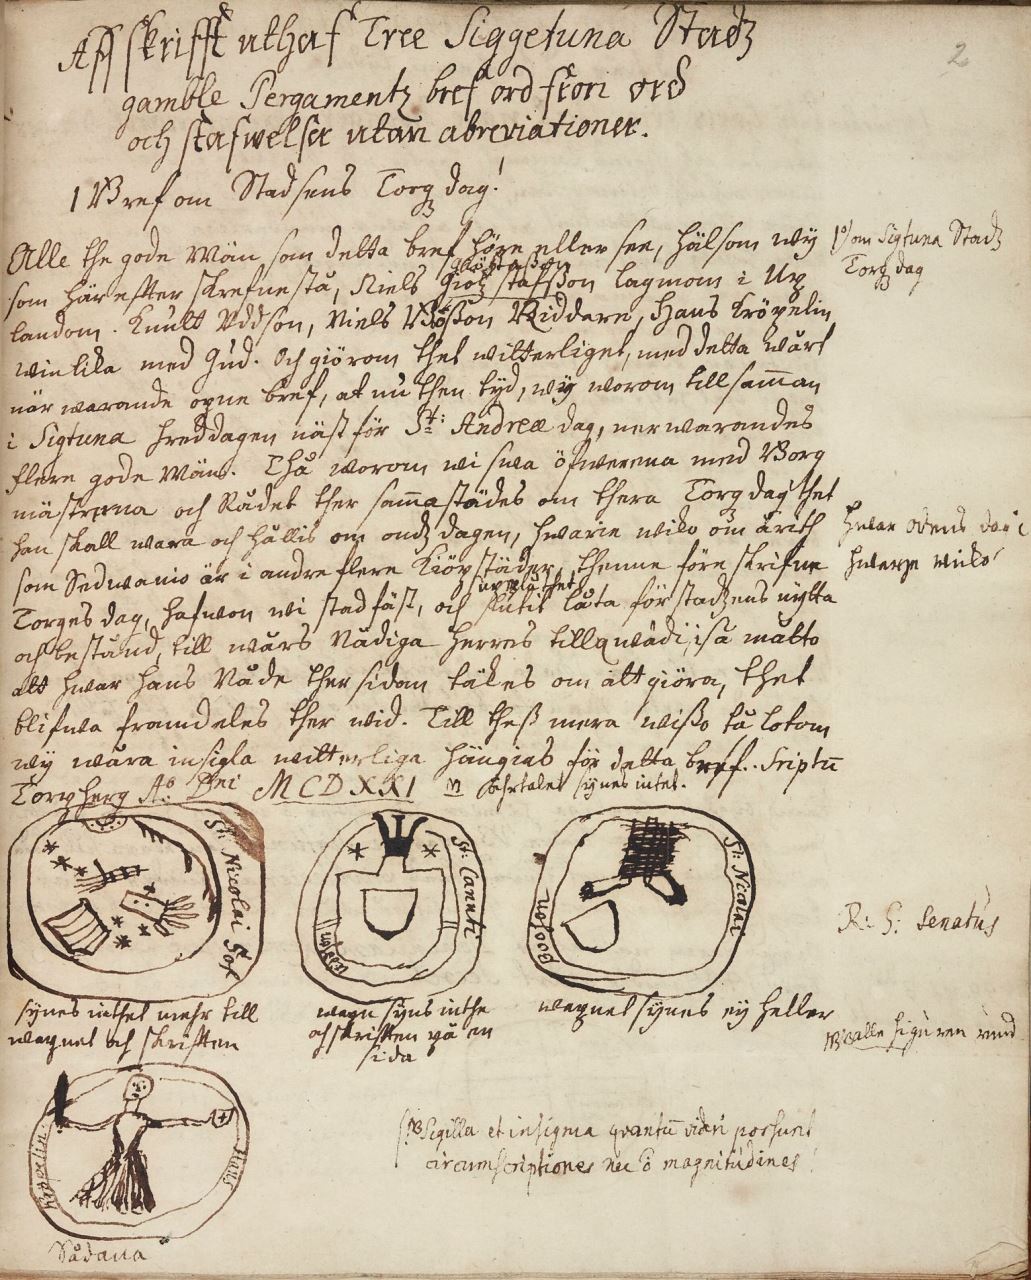 2
Affskrifft uthaf Tree Siggetuna Stadz
gamble Pergamentz bref ord från ord
och stafwelser utan abreviationer.
1 Bref om Stadsens Torgdag!
Alle the gode Män som detta bref höre eller see, hälsom wy
som här efter skrefne stå, Niels Giötstafsson lagmom i Up
landom. Knut Oddson, Niels Boßon Riddare, Hans Kröpelin
winlika med Gud. Och giörom thet witterliget, med detta wårt
när warande opne bref, at nu then tyd, wy worom tillsamman
i Sigtuna Freddagen näst för St: Andreæ dag, nerwarandes
flere gode Män. Thå worom wi swa öfwerena med Borg
mästrerna och Rådet ther samma städes om thera Torgdag thet
han skall wara och hållis om ondz dagen, hwarie wiko om årith
som Sedwanio är i andre flere Kiöpstäder, thenne före skrifne
Torges dag, hafwom wi stadfäst, och låta för stadzens nytta
och bestånd, till wårs Nådiga Herres tillqwädi, i så måtto
att hwar hans Nåde ther sidan täkes om att giöra, thet
blifwa framdeles ther wid. Till theß mera wißo tå lotom
wy wåra insigla witterliga hängias för detta bref. Sriptū
Torpberg Ao Dei MCDXXI åhrtalet synes intet.
1o om Sigtuna Stadz
Torgdag
hwar odens dag i
hwarje wiko
St: Nicolai
St: Canuti
St: Nicolai
Booson
synes inthet mehr till
wapnet och skriften
wapn syns inthe
och skriften på en
sida
wapnet synes ey heller
R: S: Senatus
NB alle figuren rund
Kröpelin
Hans
Sådana
NB Sigilla et insignia qvantū videri possunt
circumscriptiones nec magnitudines